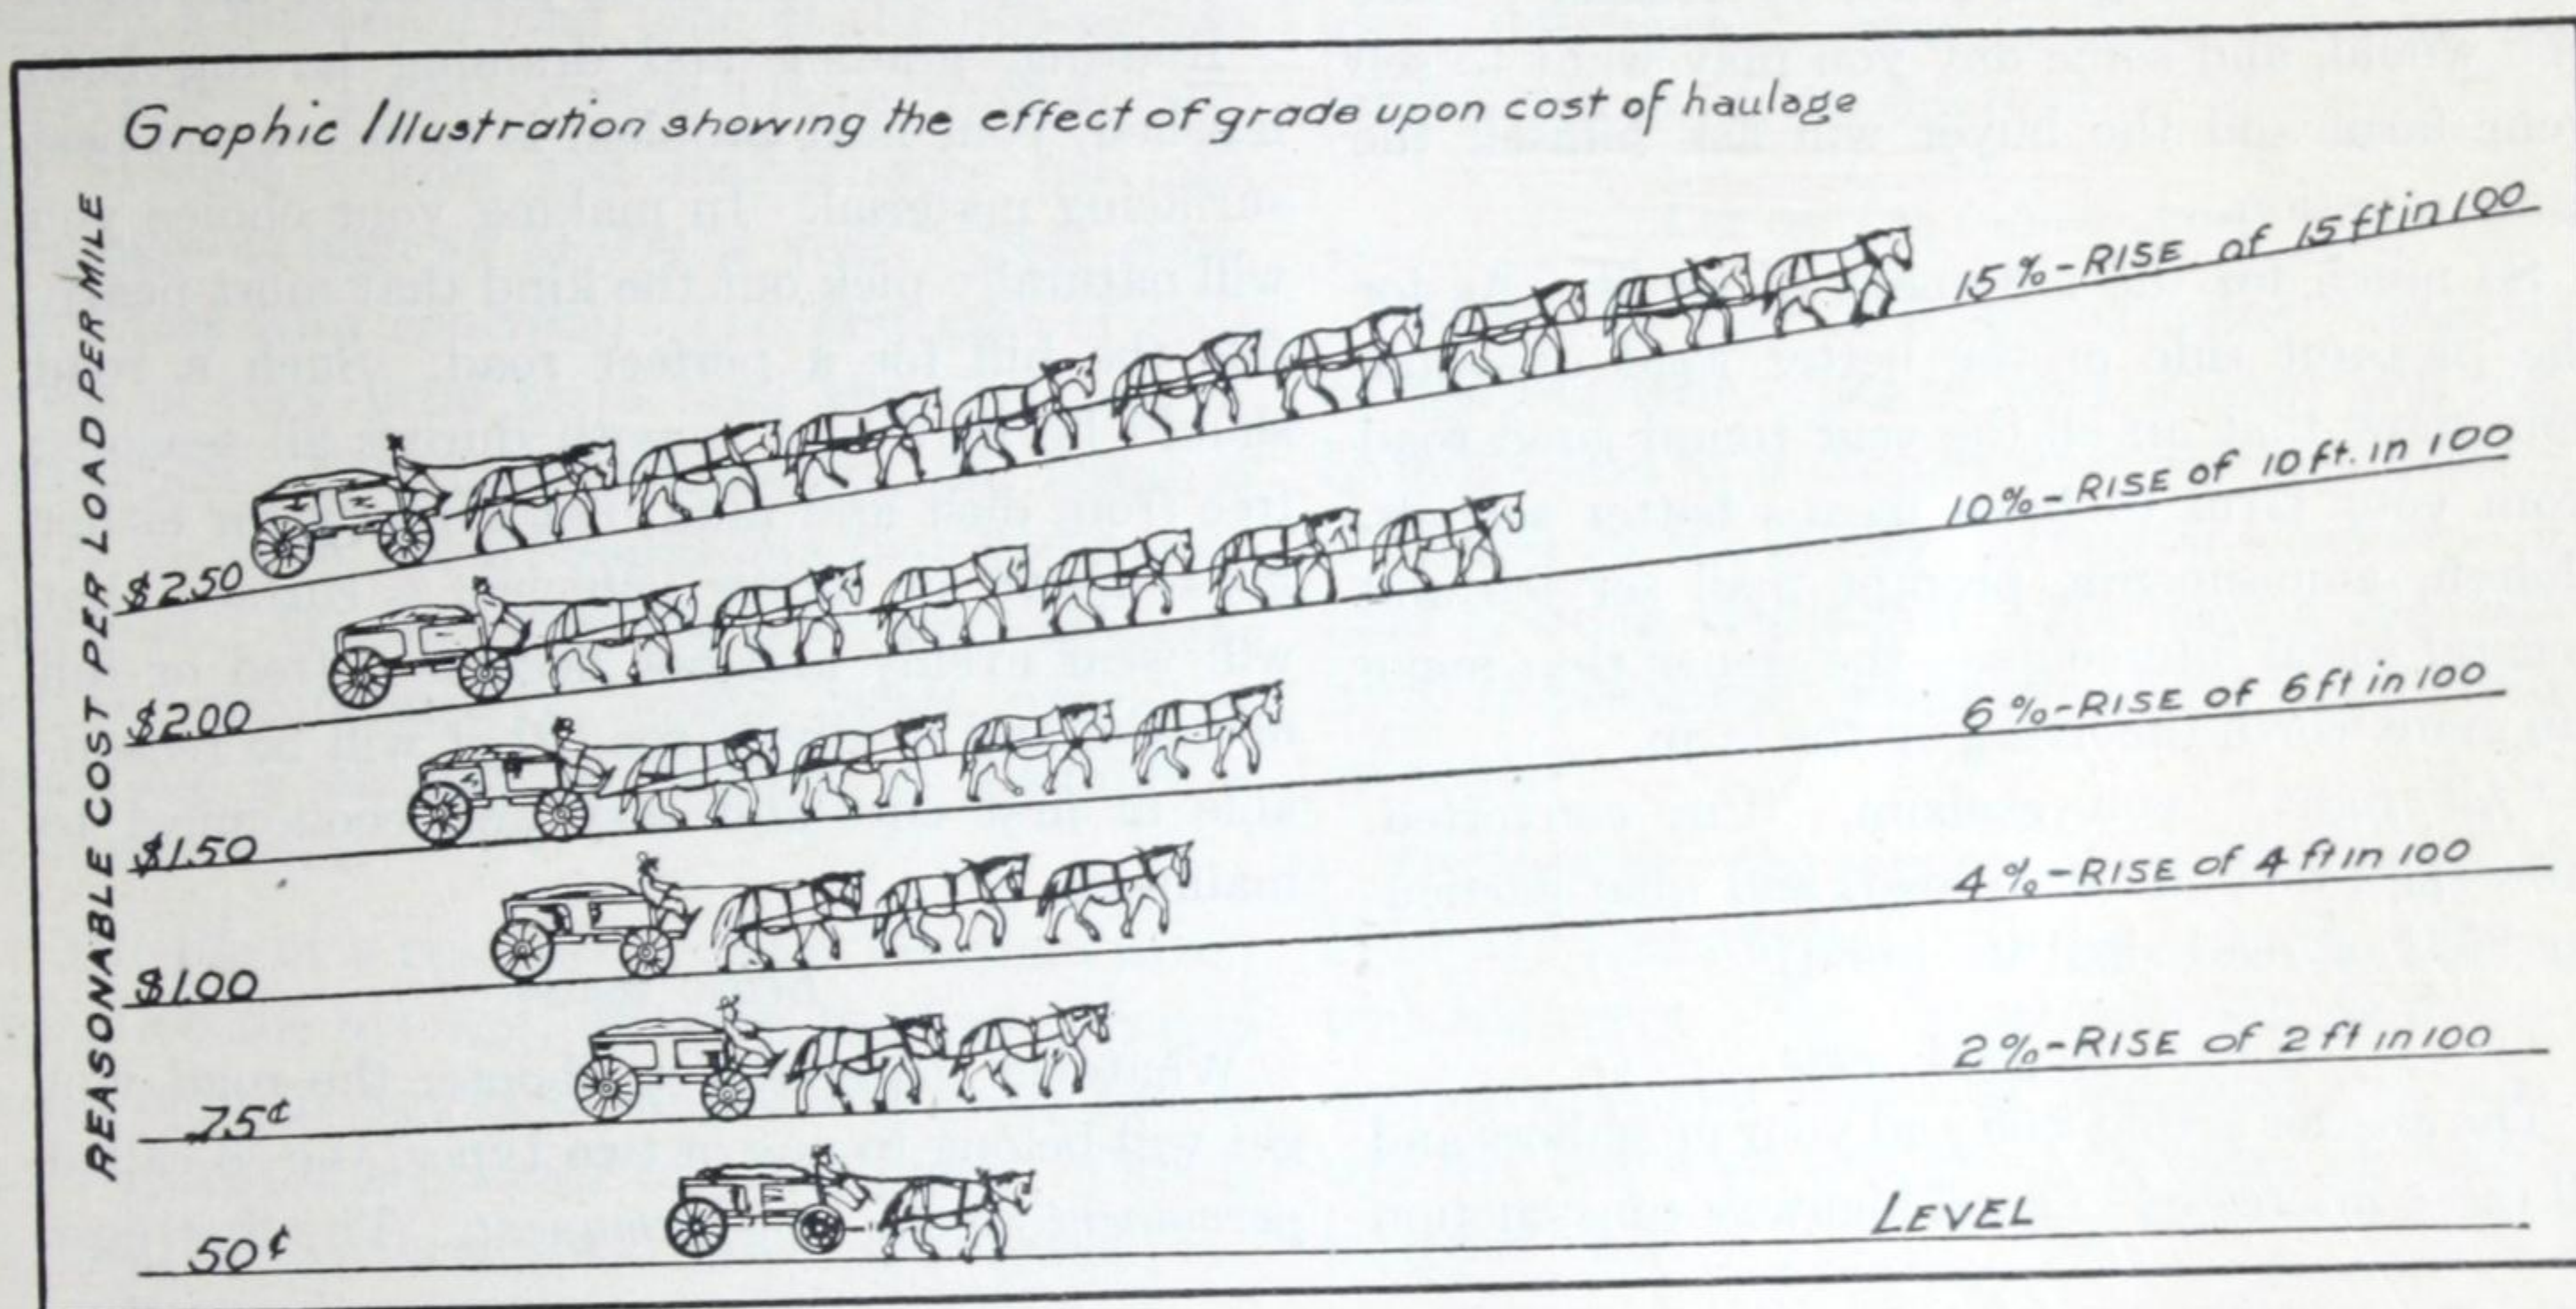 Graphic Illustration showing the effect of grade upon cost of haulage
REASONABLE COST PER LOAD PER MILE
$2.50
15%-RISE of 15 ft in 100
$2.00
10%-RISE of 10 ft. in 100
$1.50
6%-RISE of 6 ft in 100
$1.00
4%-RISE of 4 ft in 100
75¢
2%-RISE of 2 ft in 100
50¢
LEVEL